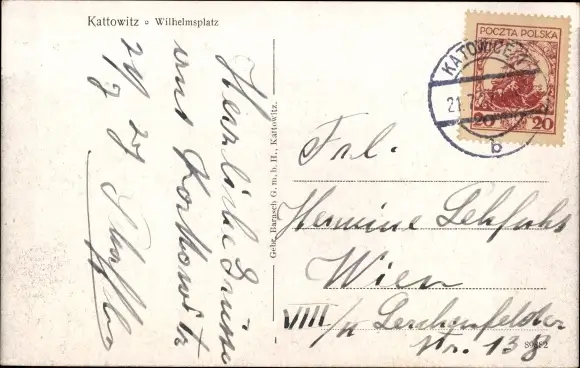 Kattowitz Wilhelmsplatz
Herzliche Grüße
aus Kattowitz
21/7 27
Gebr. Barasch G. m. b. H., Kattowitz.
POCZTA POLSKA
20 20
KATOWICE
21.7
b
Frl.
Hermine
Wien
VIII/ Lerchenfelder
Str. 138
80882